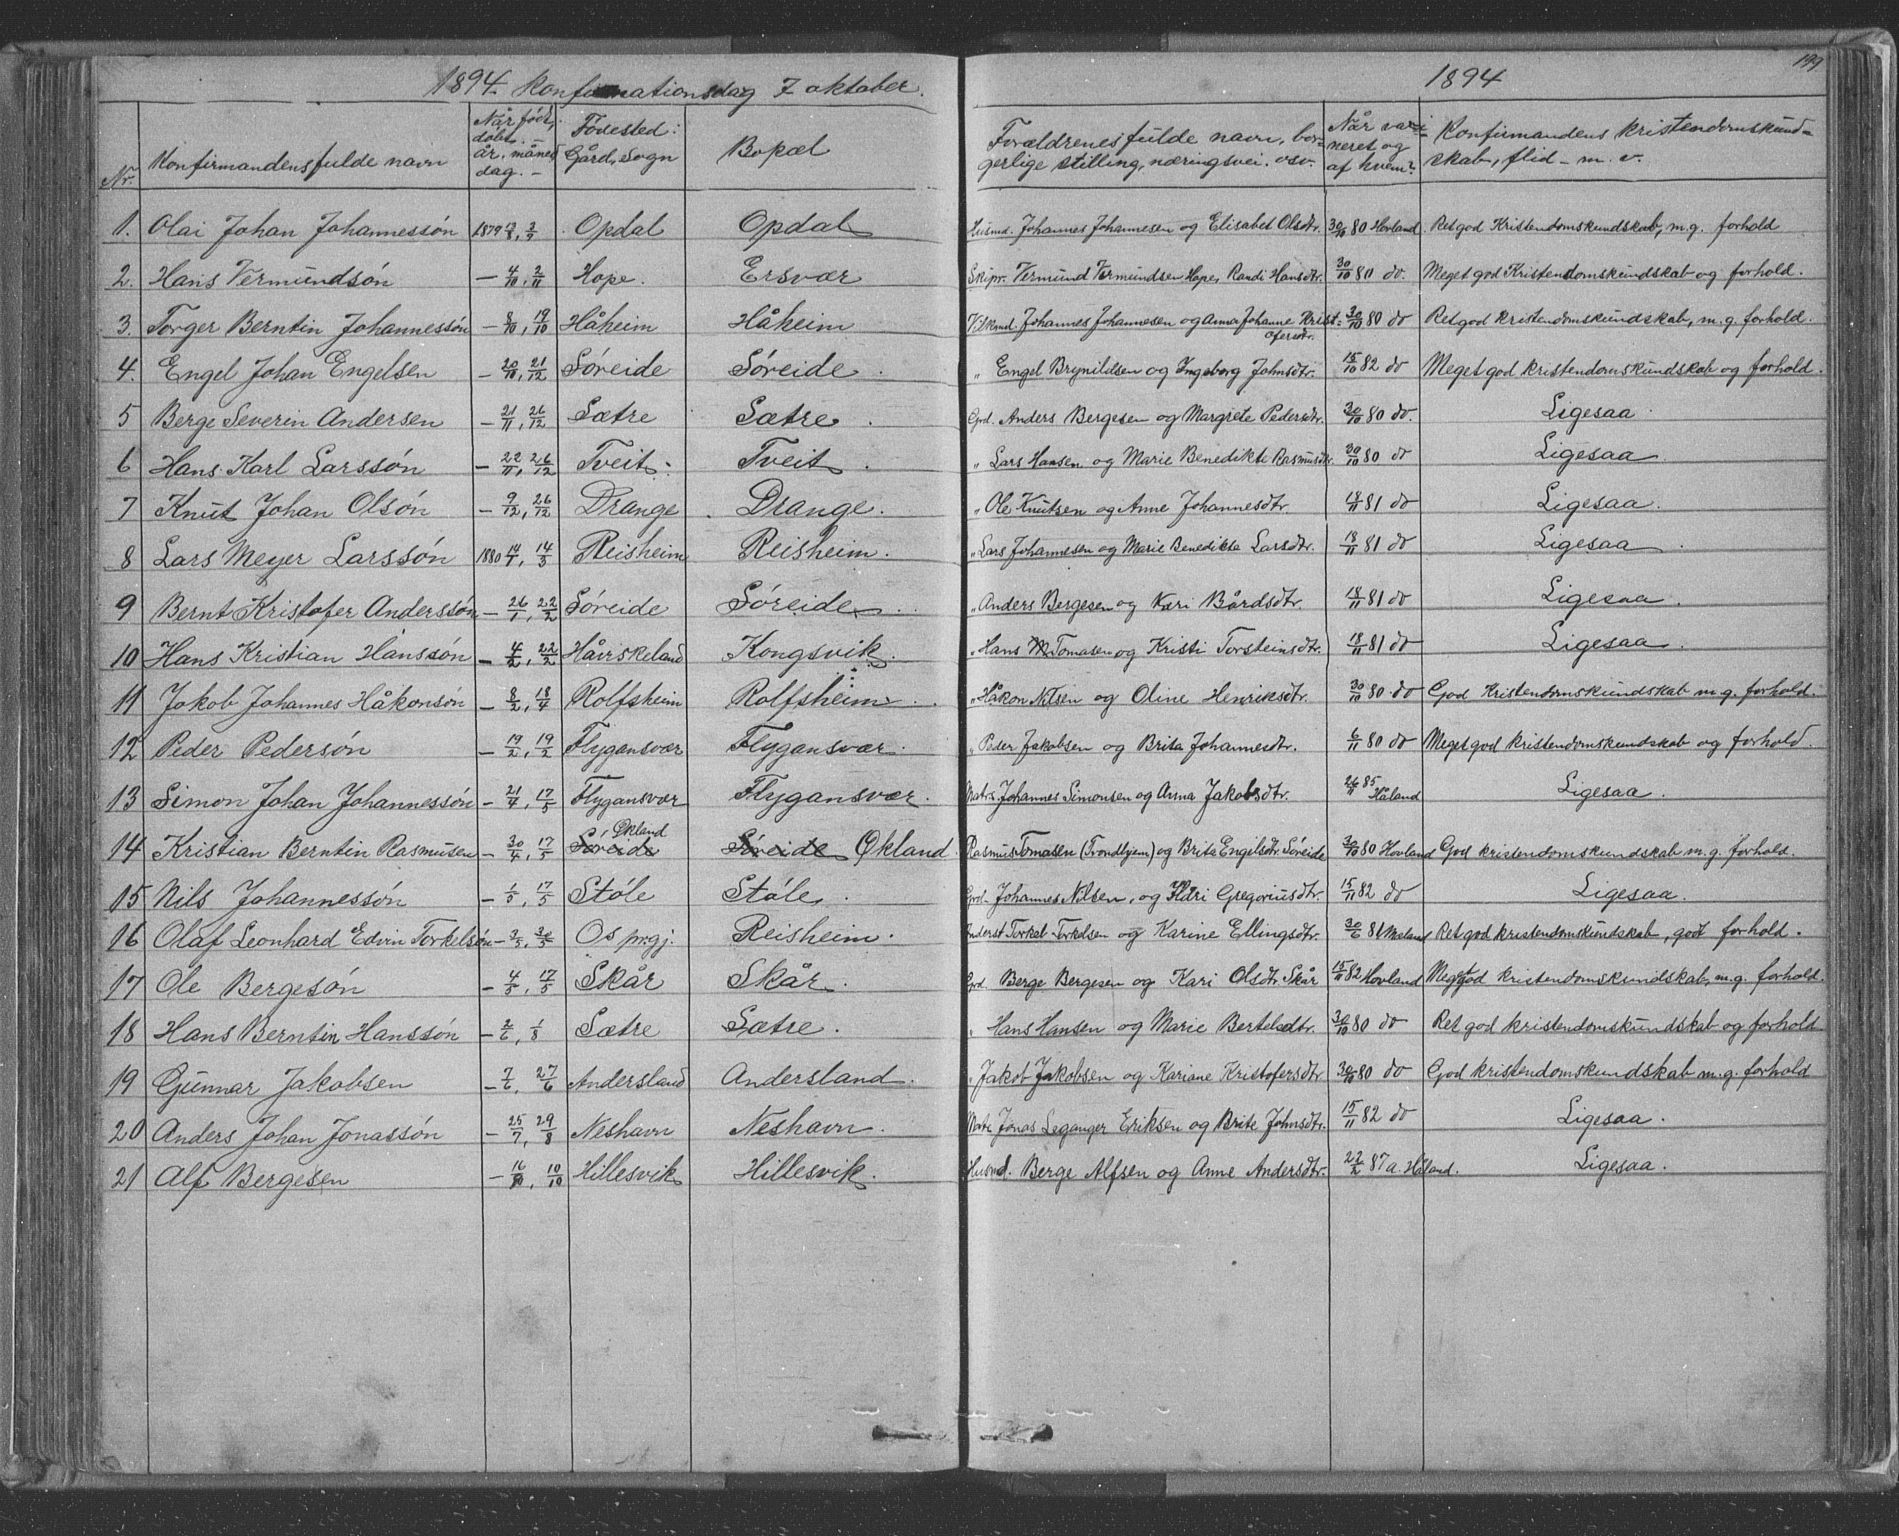 1894. Konfirmationsdag 7 oktober. 1894 199
Nr. | Konfirmandens fulde navn | Når født, døbt. år, måned dag. - | Fødested: Gård, Sogn | Bopæl | Forældrenes fulde navn, borgerlige stilling, næringsvei. osv. | Når vaccineret og af hvem? | Konfirmandens kristendomskundskab, flid - m. v.
1. Olai Johan Johannessón 1879 , 2/9 Opdal Opdal Husmd. Johannes Johannesen og Elisabet Olsdtr. 30/10 80 Hovland Ret god Kristendomskundskab, m.g. forhold
2. Hans Vermundsón — 4/10, 2/11 Hope. Ersvær Skipr. Vermund Vermundsen Hope, Randi Hansdtr. 30/10 80 do. Meget god Kristendomskundskab og forhold.
3. Torger Berntin Johannessón — 8/10, 19/10 Håheim Håheim Johannes Johannesen og Anna Johanne Kristofersdtr. 30/10 80 do Ret god kristendomskundskab, m.g. forhold.
4. Engel Johan Engelsen — 20/10, 21/12 Sóreide Sóreide. " Engel Brynildsen og Ingeborg Johnsdtr. 15/10 82 do Meget god kristendomskundskab og forhold.
5 Berge Severin Andersen — 21/11, 26/12 Sætre Sætre. Grd. Anders Bergesen og Margrete Pedersdtr. 30/10 80 do. Ligesaa.
6 Hans Karl Larssón — 22/11, 26/12 Tveit. Tveit. " Lars Hansen og Marie Benedikte Rasmusdtr. 30/10 80 do Ligesaa
7 Knut Johan Olsón — 9/12, 26/12 Drange. Drange. " Ole Knutsen og Anne Johannesdtr. 18/11 81 do Ligesaa.
8 Lars Meyer Larssón 1880 14/1, 14/3 Reisheim Reisheim. " Lars Johannesen og Marie Benedikte Larsdtr. 18/11 81 do Ligesaa.
9 Bernt Kristofer Anderssón — 26/1, 22/2 Sóreide Sóreide. " Anders Bergesen og Kari Bårdsdtr. 18/11 81 do Ligesaa.
10 Hans Kristian Hanssón — 4/2, 22/2 Håvrskeland Kongsvik. " Hans Tomasen og Kristi Torsteinsdtr. 18/11 81 do Ligesaa.
11 Jakob Johannes Håkonsón — 8/2, 18/4 Rolfsheim Rolfsheim. " Håkon Nilsen og Oline Henriksdtr. 30/10 80 do God Kristendomskundskab m.g. forhold.
12 Peder Pedersón — 19/2, 19/2 Flygansvær Flygansvær. " Peder Jakobsen og Brita Johannesdtr. 6/11 80 do Meget god kristendomskundskab og forhold.
13 Simon Johan Johannessón — 21/4, 17/5 Flygansvær Flygansvær. Matr. Johannes Simonsen og Anna Jakobsdtr. 26/11 85 Håland Ligesaa.
14 Kristian Berntin Rasmusen — 30/4, 17/5 Sóreide Økland Sóreide Økland. Rasmus Tomasen (Trondhjem) og Brita Engelsdtr. Sóreide 30/10 80 Hovland God kristendomskundskab m.g. forhold.
15 Nils Johannessón — 1/5, 17/5 Stóle Stóle. Grd. Johannes Nilsen, og Kari Gregoriusdtr. 15/11 82 do Ligesaa.
16 Olaf Leonhard Edvin Torkelsón — 3/5, 30/5 Os prgj. Reisheim. Torkel Torkelsen og Karine Ellingsdtr. 30/6 81 Meland Ret god kristendomskundskab, godt forhold.
17 Ole Bergesón — 4/5, 17/5 Skår Skår. Grd. Berge Bergesen og Kari Olsdtr. Skår 15/11 82 Hovland Meget god kristendomskundskab, m.g. forhold.
18 Hans Berntin Hanssón — 2/6, 1/8 Sætre Sætre. " Hans Hansen og Marie Bertelsdtr. 30/10 80 do Ret god kristendomskundskab og forhold
19 Gunnar Jakobsen — 7/6, 27/6 Andersland Andersland. " Jakob Jakobsen og Kariane Kristofersdtr. 30/10 80 do God kristendomskundskab m.g. forhold
20 Anders Johan Jonassón — 25/7, 29/8 Neshavn Neshavn. Matr. Jonas Leganger Eriksen og Brite Johnsdtr. 15/11 82 do Ligesaa.
21 Alf Bergesen — , 10/10 Hillesvik Hillesvik. Husmd. Berge Alfsen og Anne Andersdtr. 22/2 87 a. Håland. Ligesaa.